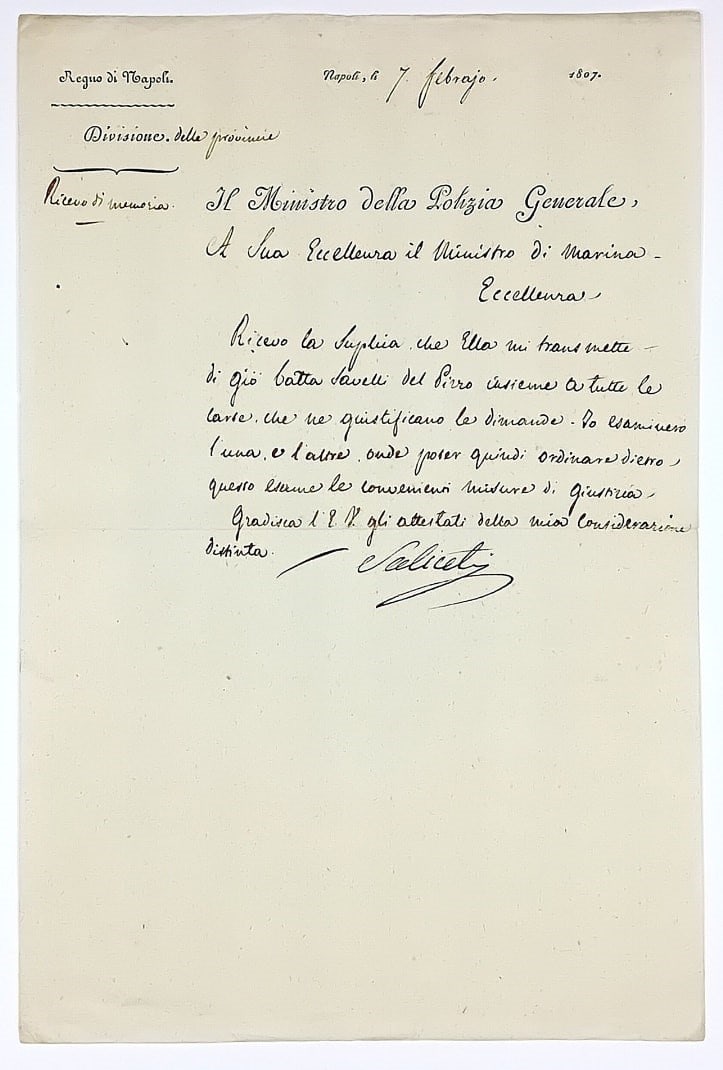 Regno di Napoli.
Napoli, li 7. febrajo. 1807.
Divisione. delle provincie
Ricevo di memoria.
Il Ministro della Polizia Generale,
A Sua Eccellenza il Ministro di Marina
Eccellenza
Ricevo la Suplica, che Ella mi transmette
di Gio Batta Savelli del Pizzo insieme a tutte le
carte, che ne giustificano le dimande. Io esaminerò
l'una, e l'altre, onde poter quindi ordinare dietro
questo esame le convenienti misure di giustizia.
Gradisca l'E. V. gli attestati della mia considerazione
distinta.
Saliceti